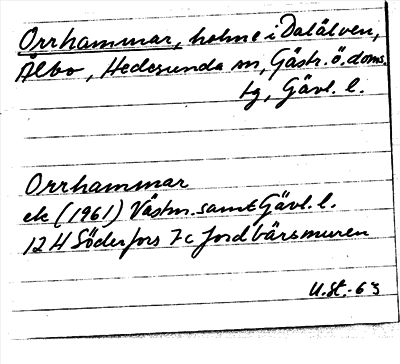 Orrhammar, holme i Dalälven,
Ålbo, Hedesunda sn, Gästr. ö. doms.
tg, Gävl. l.
Orrhammar
ek (1961) Västm. samt Gävl. l.
12 H Söderfors 7 c Jordbärsmuren
U.St. 63